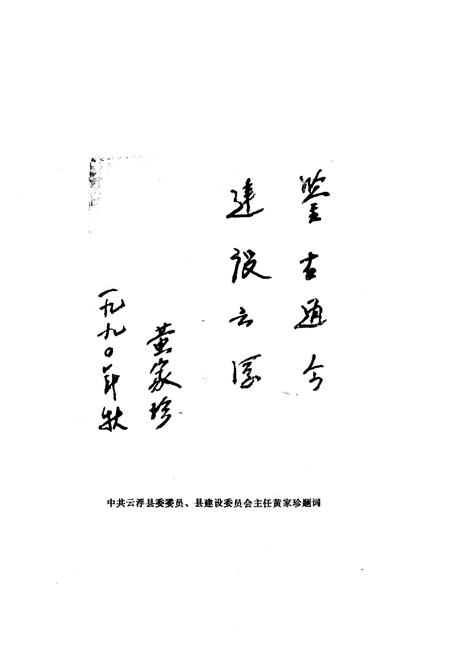 鉴古通今
建设云浮
黄家珍
一九九〇年秋
中共云浮县委委员、县建设委员会主任黄家珍题词